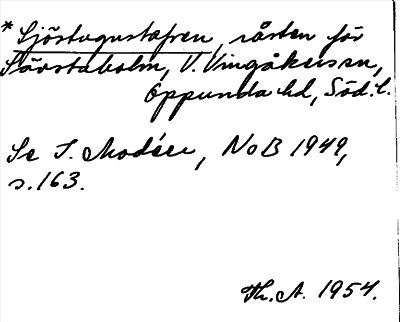 *Sjöstugustafren, råsten för
Särstaholm, V. Vingåkers sn,
Oppunda hd, Söd. l.
Se I. Modéer, NoB 1949,
s. 163.
Th. A. 1954.